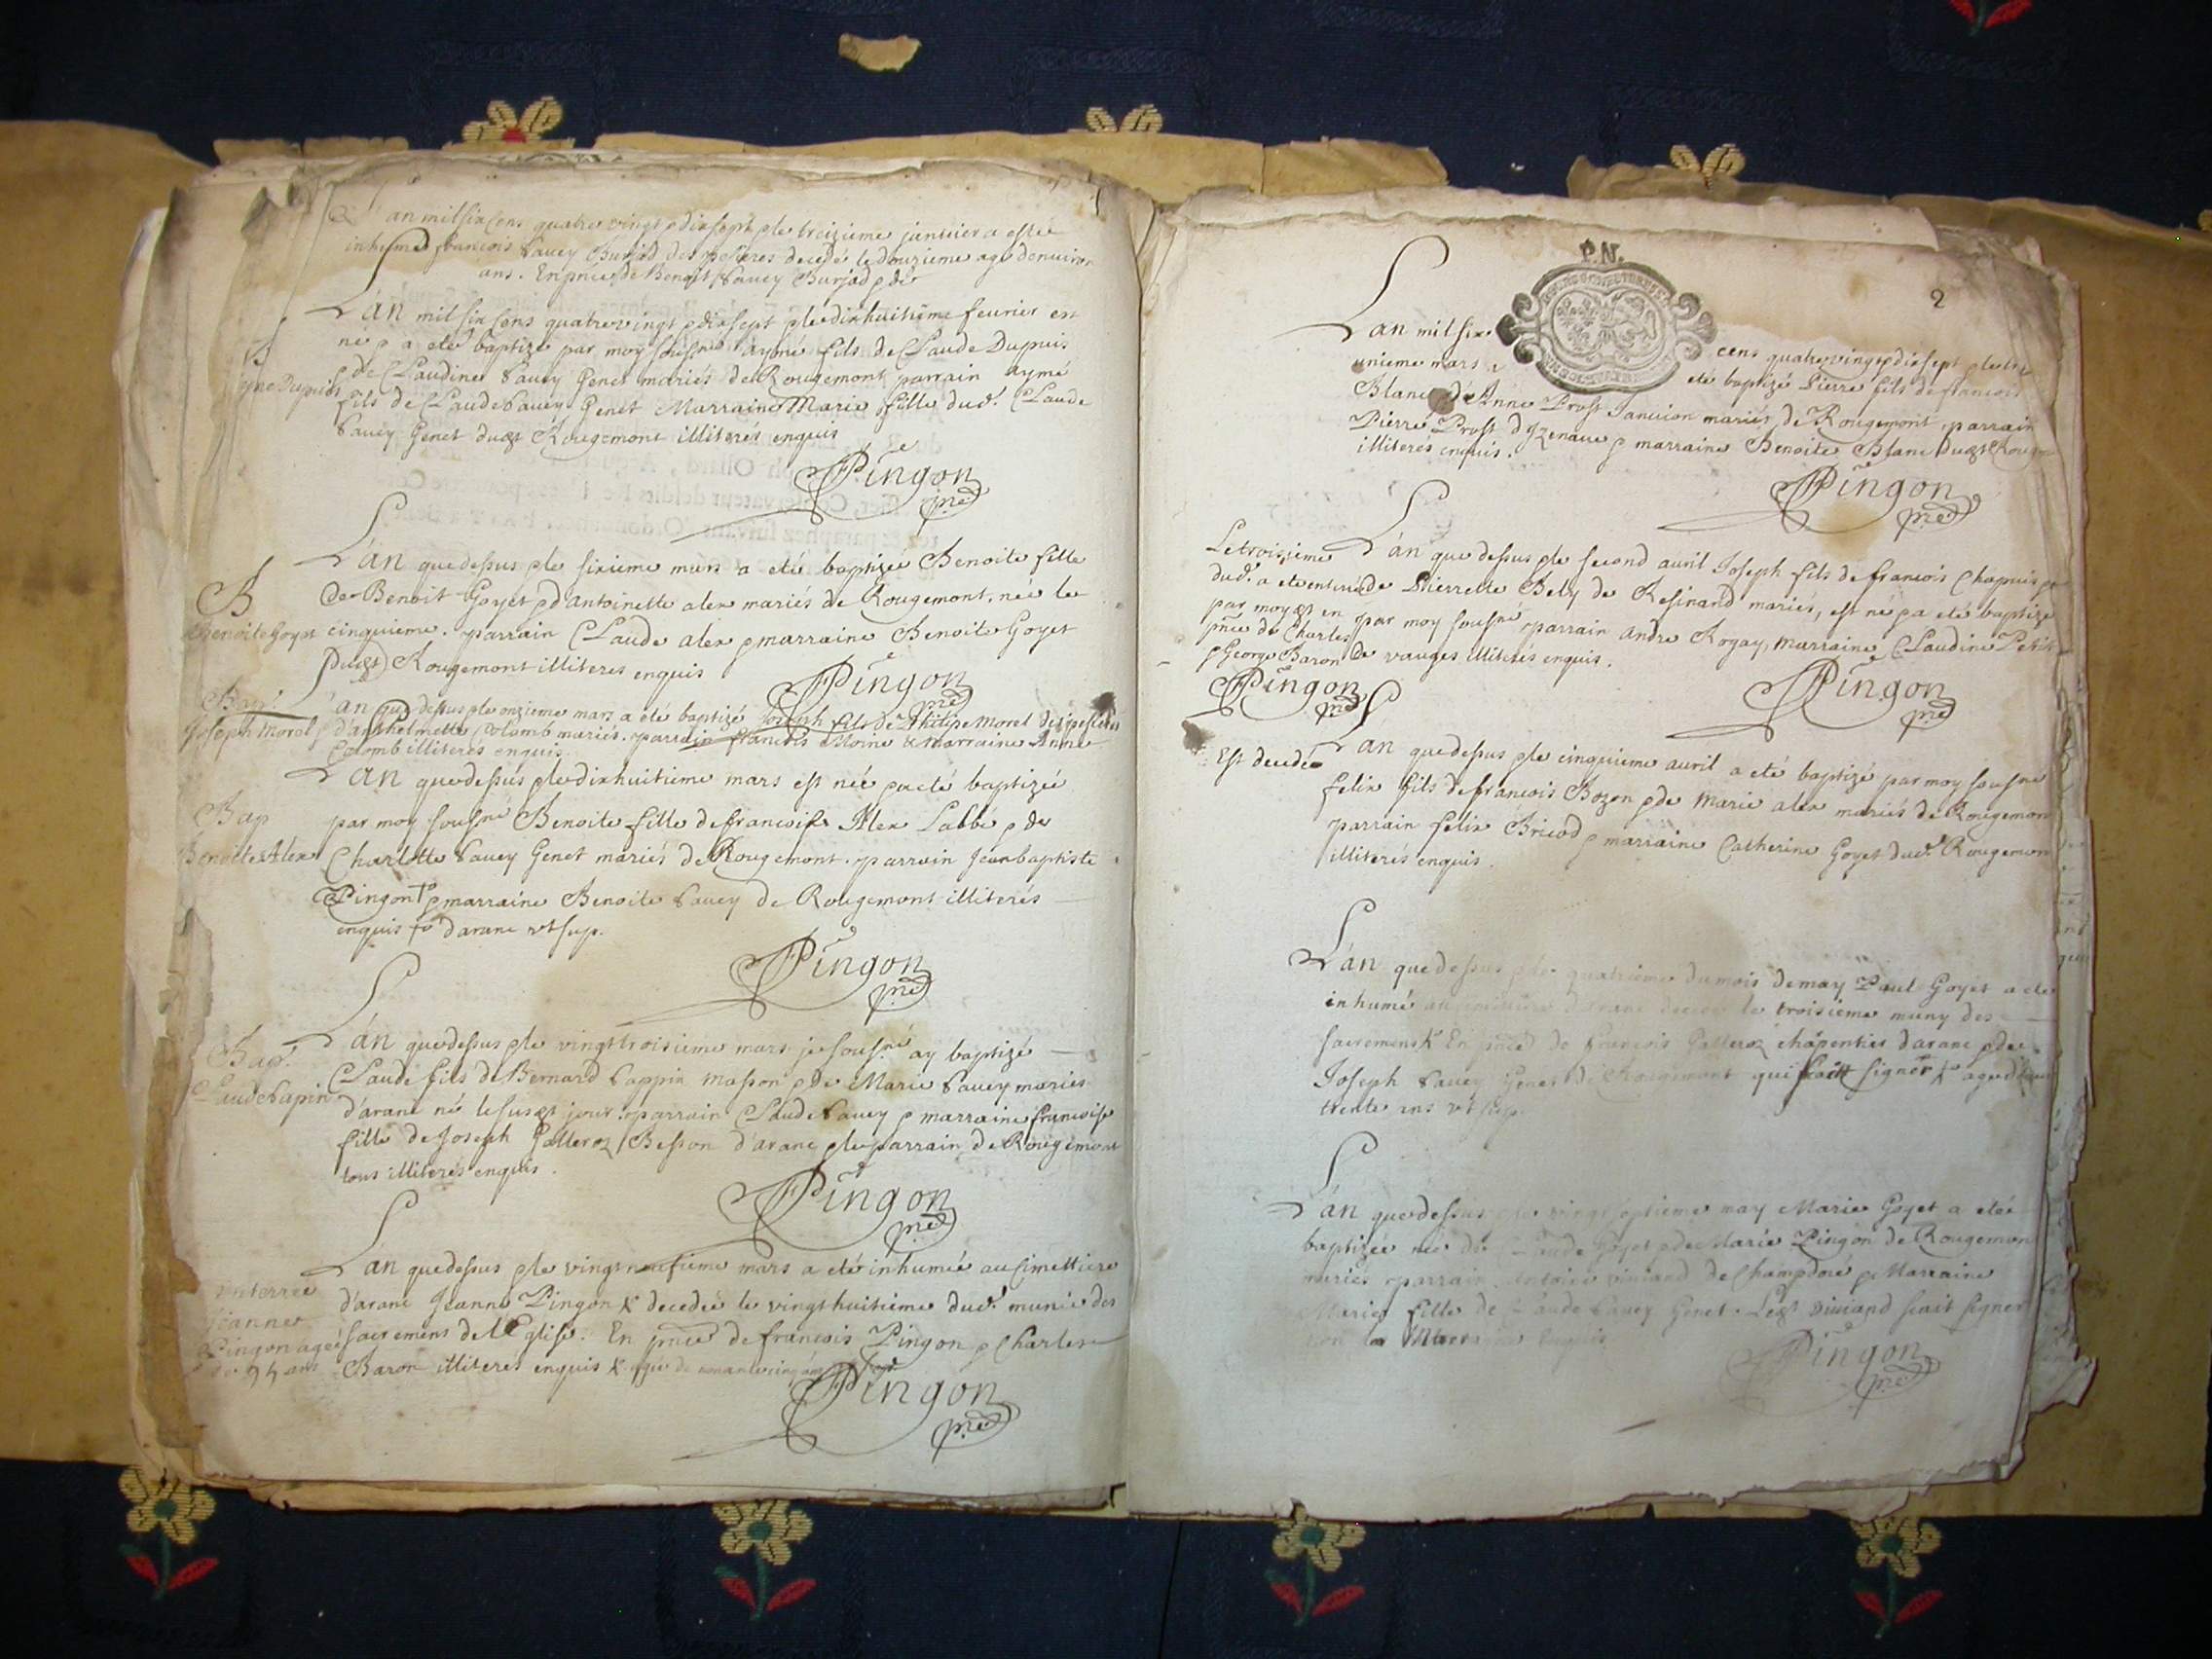 L'an mil six cens quatre vingt & dix sept & le treizieme januier a este
inhumé francois Sauey Burjod des peseres decedé le douzieme agé denuiron
ans. En pnce de Benoist Sauey Burjod & de
L'an mil six cens quatre vingt & dix sept & le dix huitieme feurier est
né & a eté baptizé par moy sousné Aymé fils de Claude Dupuis
& de Claudine Sauey Genet mariés de Rougemont parrain aymé
Aymé Dupuis
fils de Claude Sauey Genet Marraine Marie fille dud. Claude
Sauey Genet dudt Rougemont illiterés enquis
Pingon
pre
L'an que dessus & le sixieme mars a eté baptizée Benoite fille
B
de Benoit Goyet & d'antoinette alex mariés de Rougemont, née le
Benoite Goyet
cinquieme. parrain Claude alex & marraine Benoite Goyet
dudt Rougemont illiteres enquis
Pingon
pre
Bap.
Joseph Morel
L'an que dessus & le onzieme mars a eté baptizé Joseph fils de Philipe Morel des peseres
& d'anthelmette Colomb mariés. parrain francois Moine & marraine Anne
Colomb illiterés enquis
L'an que dessus & le dix huitieme mars est née & a eté baptizée
Bap
par moy sousné Benoite fille de francois Alex Labbé & de
Benoite Alex
Charlotte Sauey Genet mariés de Rougemont. parrain Jean baptiste
Pingon & marraine Benoite Sauey de Rougemont illiterés
enquis d'arane vt sup.
Pingon
pre
L'an que dessus & le vingt troisieme mars je sousné ay baptizé
Bap.
Claude fils de Bernard Sappin masson & de Marie Sauey mariés
Claude Sapin
d'arane né le susdt jour. parrain Claude Sauey & marraine francoise
fille de Joseph Galleroz Besson d'arane & le parrain de Rougemont
tous illiterés enquis.
Pingon
pre
L'an que dessus & le vingt neufieme mars a eté inhumée au Cimettiere
enterree
d'arane Jeanne Pingon decedée le vingt huitieme dud. munie des
jeanne
sacremens de l'Eglise. En pnce de francois Pingon & Charles
Pingon agée
Baron illiterés enquis agée de nonante cinq ans
de 95 ans
Pingon
pre
P.N.
2
L'an mil six cens quatre vingt & dix sept & le
unieme mars eté baptizé Pierre fils de francois
Blanc & d'Anne Prost Januion mariés de Rougemont, parrain
Pierre Prost d'Izenaue & marraine Benoite Blanc dudt Rougemont
illiterés enquis.
Pingon
pre
L'an que dessus & le second auril Joseph fils de francois Chapuis &
de Pierrette Bely de Resinand mariés, est né & a eté baptizé
par moy sousné parrain andré Rogay, marraine Claudine Petit
de vauges illiterés enquis.
Le troisieme
dud. a eté enterré
par moy & en
pnce de Charles
& George Baron
Pingon
pre
Pingon
pre
Est decedé
L'an que dessus & le cinquieme auril a eté baptizé par moy sousné
felix fils de francois Bozon & de Marie alex mariés de Rougemont
parrain felix Bricod & marraine Catherine Goyet dud. Rougemont
illiterés enquis.
L'an que dessus & le quatrieme du mois de may Paul Goyet a eté
inhumé au cimitiere d'arane decedé le troisieme muny des
sacremens En pnce de francois Galleroz chapentier d'arane & de
Joseph Sauey Genet de Rougemont qui scait signer agé d'enuiron
trente ans vt sup.
L'an que dessus & le vingt septieme may Marie Goyet a eté
baptizée née de Claude Goyet & de Marie Pingon de Rougemont
mariés parrain Antoine viuiand de Champdoré & Marraine
Marie fille de Claude Sauey Genet. Ledt viuiand scait signer
non la Marraine enquis
Pingon
pre